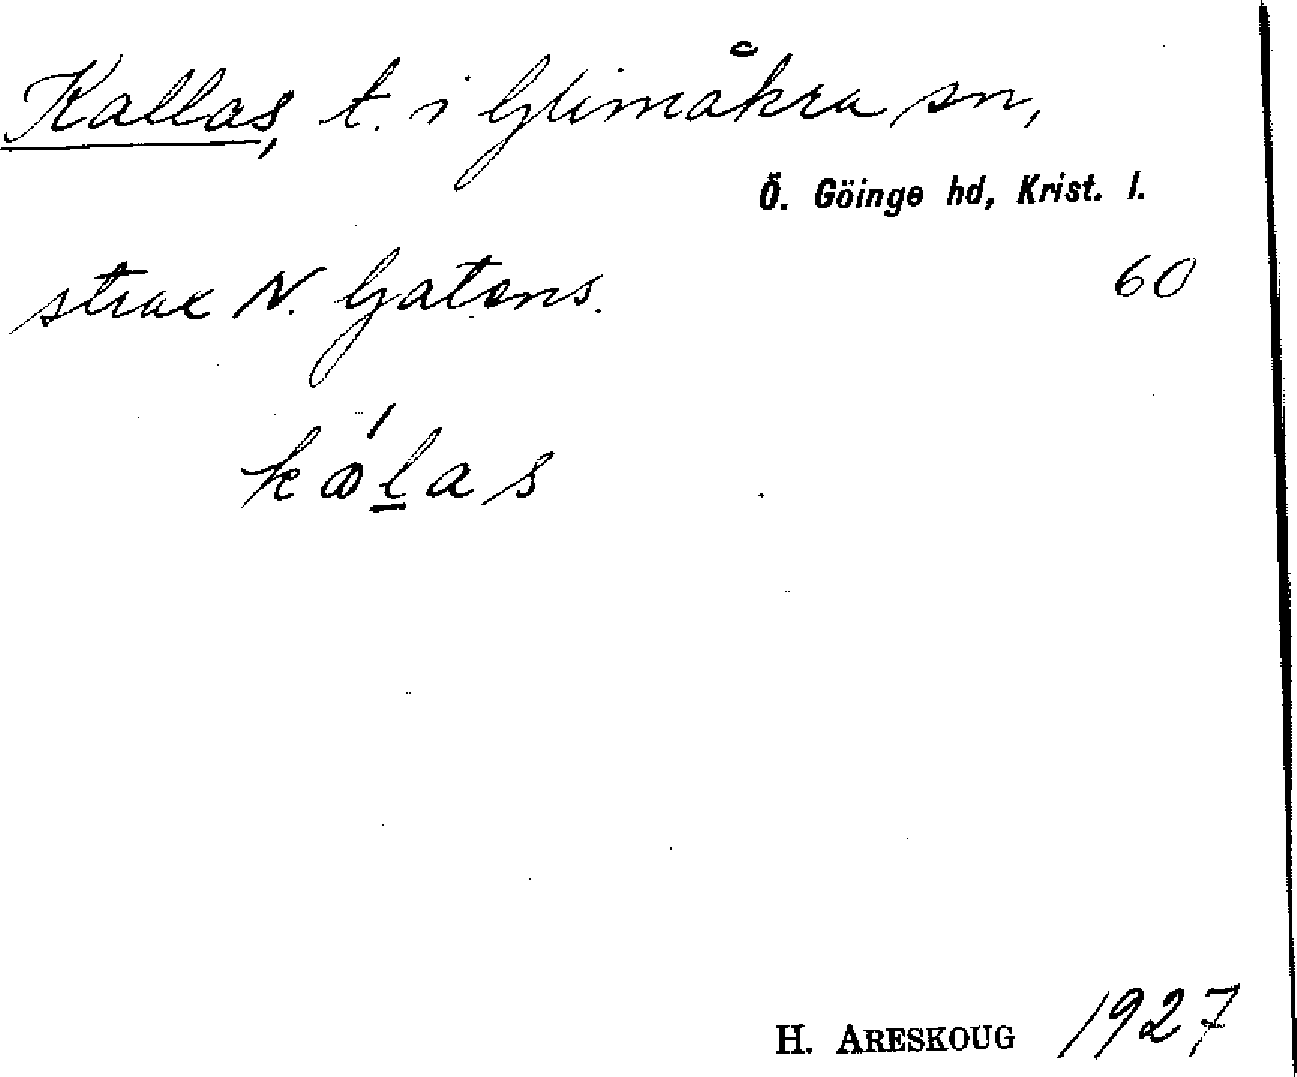 Kallas, t. i Glimåkra sn,
Ö. Göinge hd, Krist. l.
strax N. Gatens. 60
kálas
H. ARESKOUG 1927